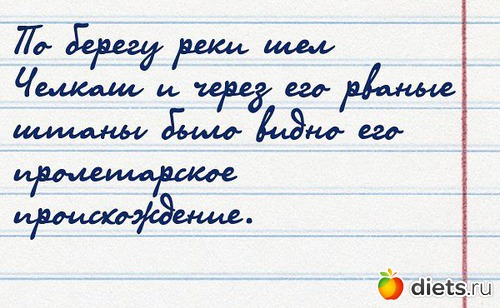 По берегу реки шел
Челкаш и через его рваные
штаны было видно его
пролетарское
происхождение.
diets.ru